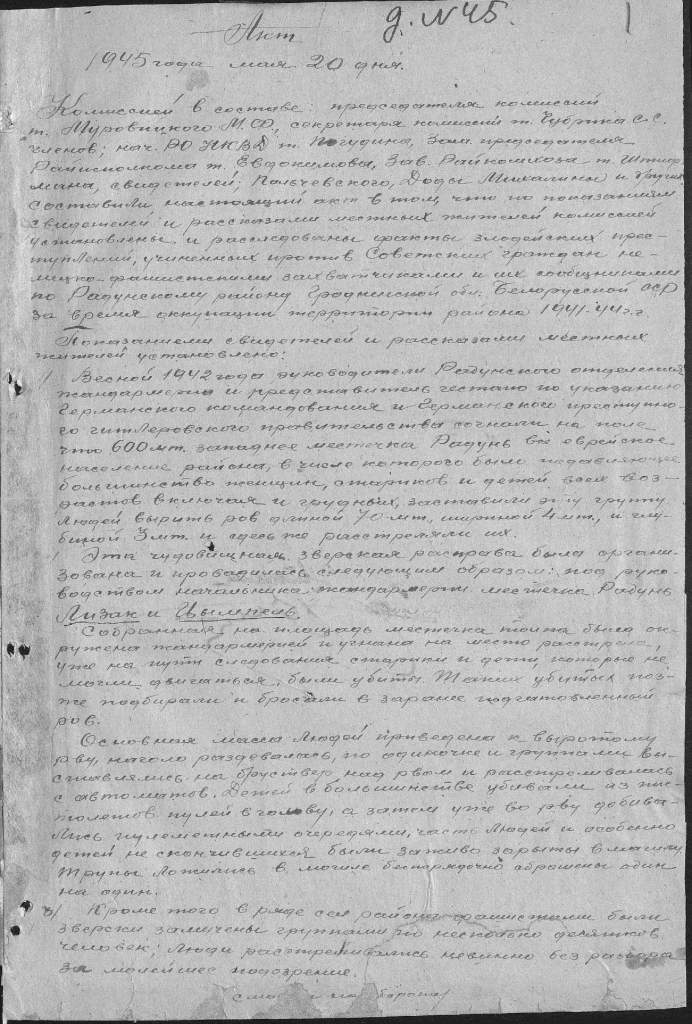 д. N 45.
1
Акт
1945 года мая 20 дня.
Комиссией в составе: председателя комиссии
т. Муровицкого М.Ф., секретаря комиссии т. С.С.
членов; нач. РО НКВД т. Зам. председателя
Райисполкома т. Евдокимова, Зав. Райкомхоза т.
мана, свидетелей: Кольчевского, Доды Михалины и других
составили настоящий акт в том, что по показаниям
свидетелей и рассказами местных жителей комиссией
установлены и расследованы факты злодейских прес-
туплений, учиненных против Советских граждан не-
мецко-фашистскими захватчиками и их сообщниками
по Радунскому району Гродненской обл. Белорусской ССР
за время оккупации территории района 1941-44 г.г.
Показаниями свидетелей и рассказами местных
жителей установлено:
1/ Весной 1942 года руководители Радунского отделения
жандармерии и представитель гестапо по указанию
Германского командования и Германского преступно-
го гитлеровского правительства согнали на поле
что 600 мт. западнее местечка Радунь все еврейское
население района, в числе которого было подавляющее
большинство женщин, стариков и детей всех воз-
растов включая и грудных, заставили эту группу
людей вырыть ров длиной 70 мт., шириной 4 мт., и глу-
биной 3 мт. и здесь же расстреляли их.
Эта чудовищная зверская расправа была органи-
зована и проводилась следующим образом: под руко-
водством начальника жандармерии местечка Радунь
Лизак и Цымпель.
Собранная на площадь местечка толпа была ок-
ружена жандармерией и угнана на место расстрела,
уже на пути следования старики и дети, которые не
могли двигаться, были убиты. Таких убитых поз-
же подбирали и бросали в заранее подготовленный
ров.
Основная масса людей приведена к вырытому
рву, наголо раздевалась, по одиночке и группами вы-
ставлялись на бруствер над рвом и расстреливалась
с автоматов. Детей в большинстве убивали из пис-
толетов пулей в голову, а затем уже во рву добива-
лись пулеметными очередями, часть людей и особенно
детей не скончившихся были заживо зарыты в могилу
Трупы ложились в могиле беспорядочно сброшены один
на один.
3/ Кроме того в ряде сел района фашистами были
зверски замучены группами по несколько десятков
человек; люди расстреливались невинно без разбора
за малейшее подозрение.